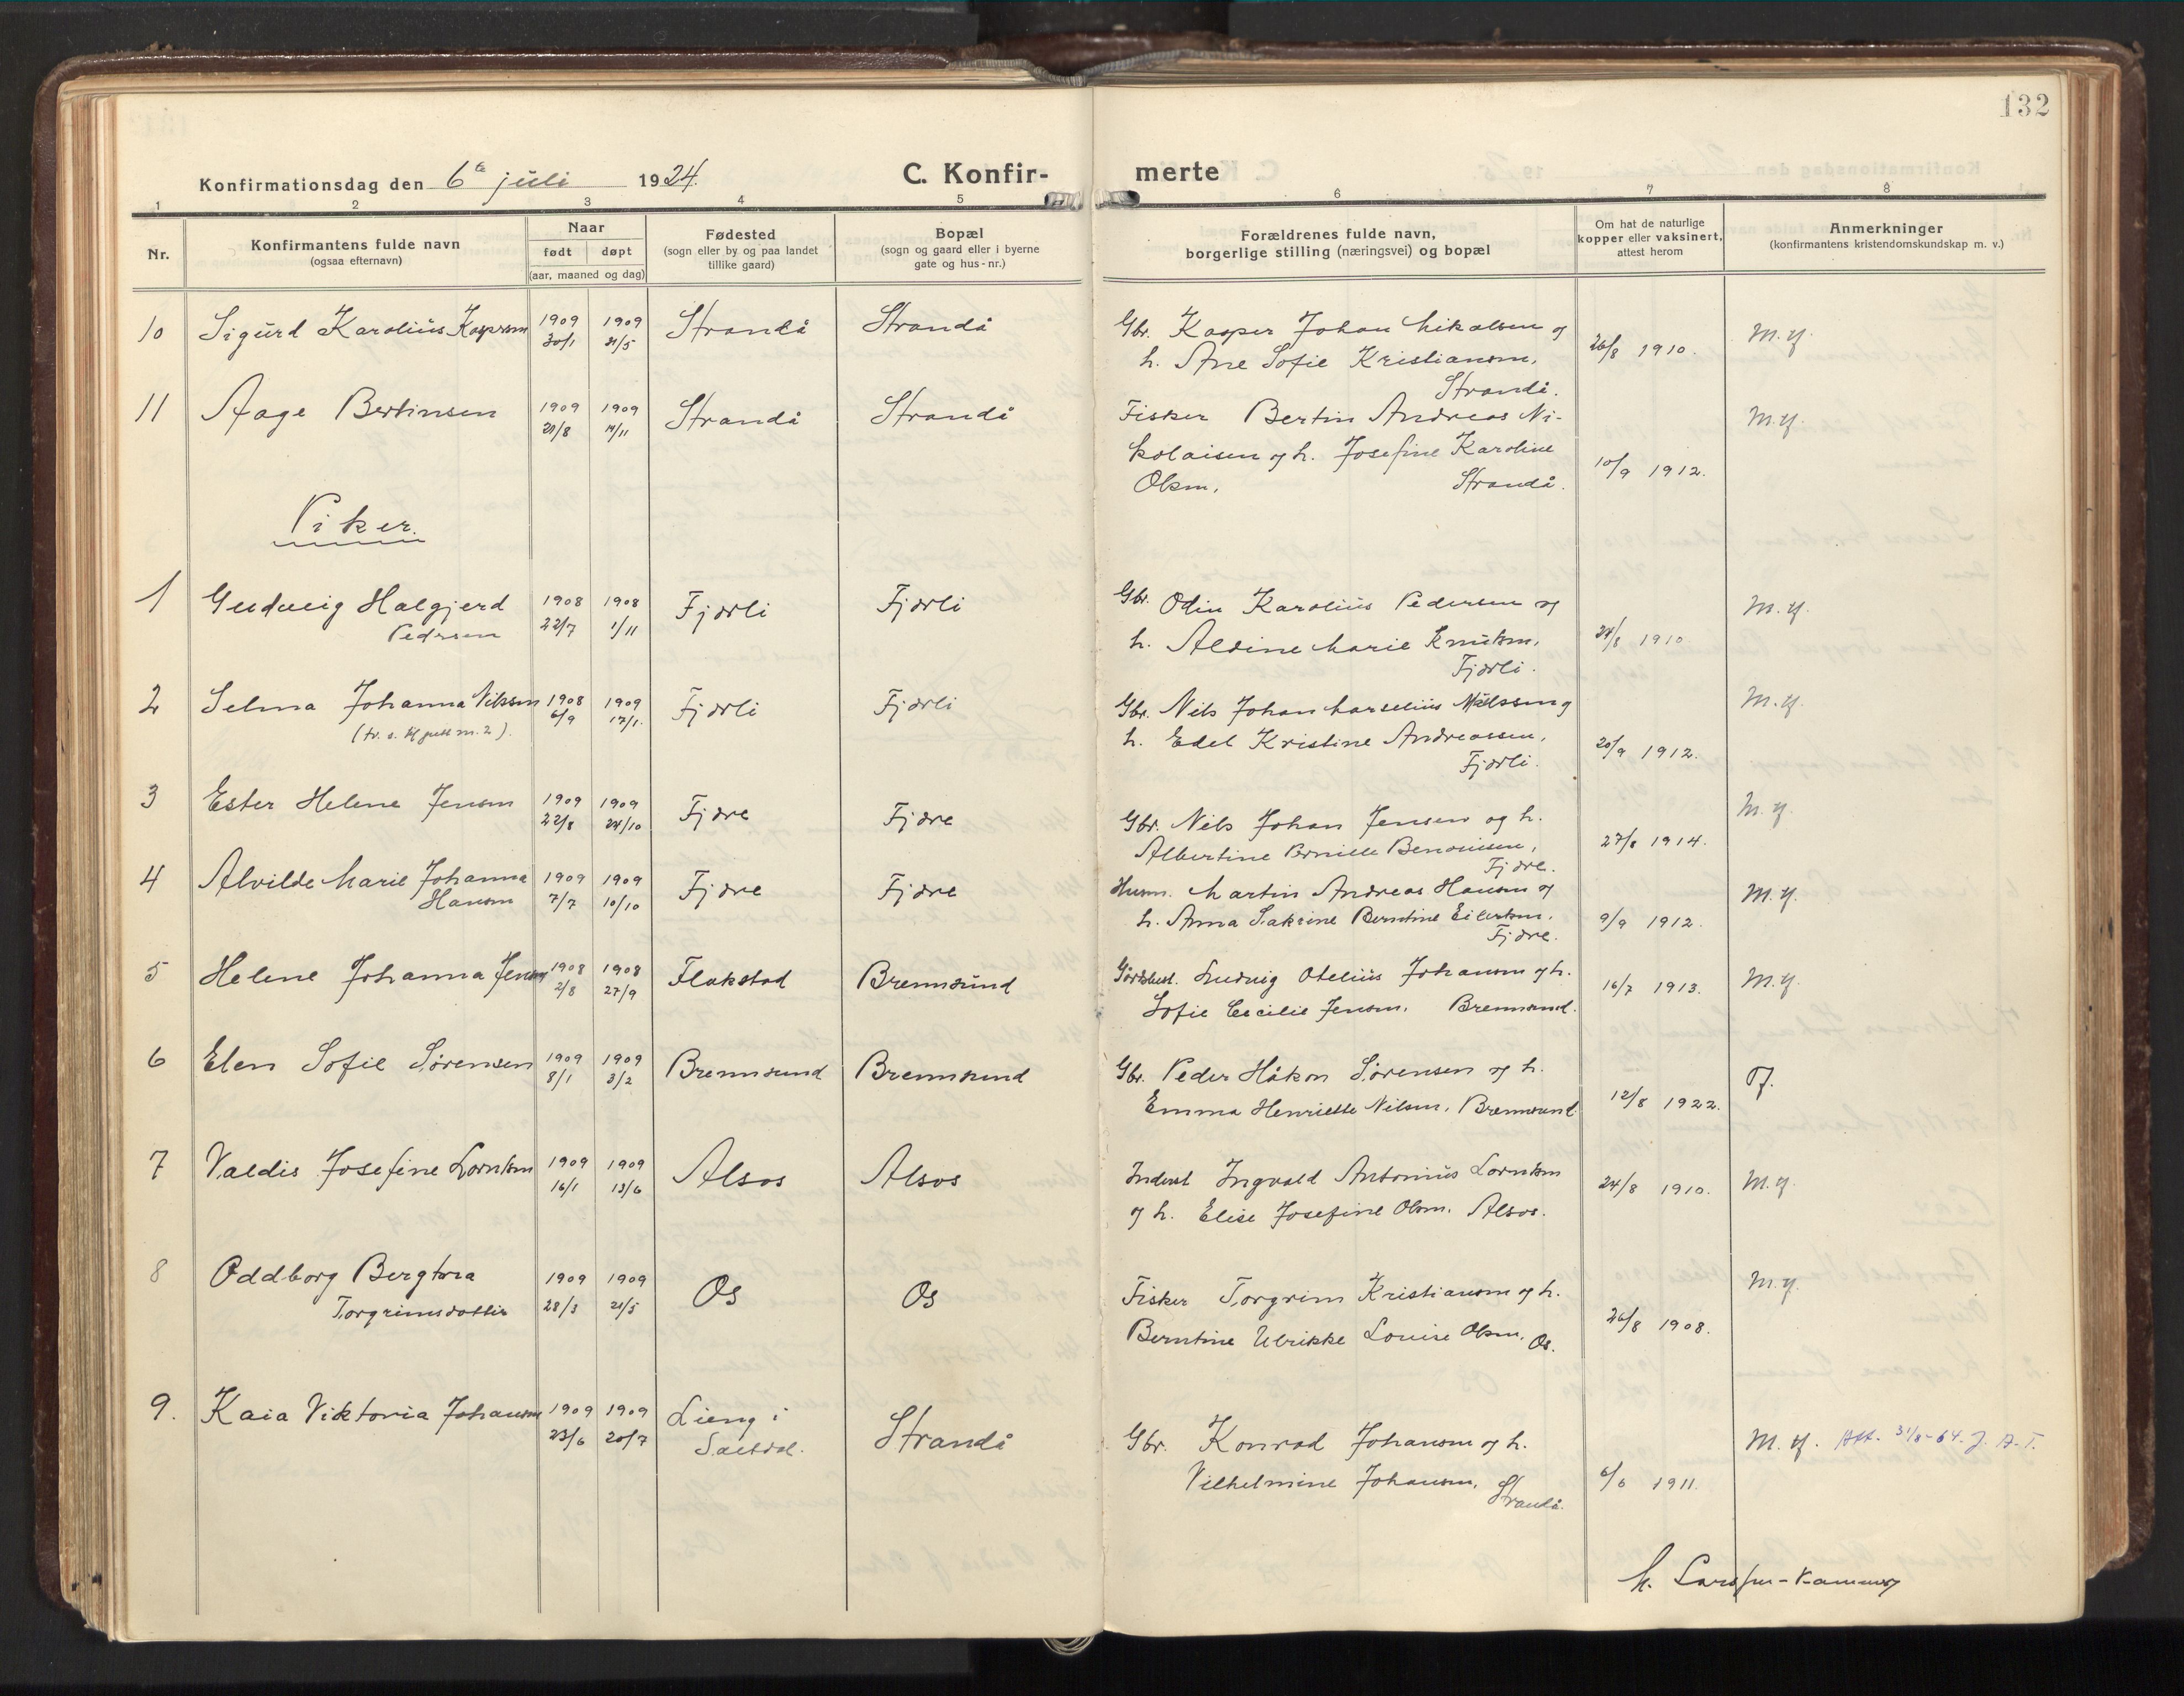 132
Konfirmationsdag den 6te juli 1924.
C. Konfir-
merte
1 2 3 4 5 6 7 8
Nr.
Konfirmantens fulde navn
(ogsaa efternavn)
Naar
født døpt
(aar, maaned og dag)
Fødested
(sogn eller by og paa landet
tillike gaard)
Bopæl
(sogn og gaard eller i byerne
gate og hus-nr.)
Forældrenes fulde navn,
borgerlige stilling (næringsvei) og bopæl
Om hat de naturlige
kopper eller vaksinert,
attest herom
Anmerkninger
(konfirmantens kristendomskundskap m. v.)
10 Sigurd Karolius Kaspersen 1909 1909 Strandå Strandå Gbr. Kasper Johan Mikalsen og
30/1 21/5 h. Ane Sofie Kristiansen, 26/8 1910. M.g.
Strandå.
11 Aage Bertinsen 1909 1909 Strandå Strandå Fisker Bertin Andreas Ni- M.g.
21/8 14/11 kolaisen og h. Josefine Karoline 10/9 1912.
Olsen, Strandå.
Piker.
1 Gudveig Halgjerd 1908 1908 Fjærli Fjærli Gbr. Odin Karolius Pedersen og M.g.
Pedersen 22/7 1/11 h. Aldine Marie Knutsen, 24/8 1910
Fjærli.
2 Selma Johanna Nilssen 1908 1909 Fjærli Fjærli Gbr. Nils Johan Marselius Nilssen og M.g.
6/9 17/1. h. Edel Kristine Andreassen, 20/9 1912.
Fjærli.
3 Ester Helene Jensen 1909 1909 Fjære Fjære Gbr. Nils Johan Jensen og h. M.g.
22/8 24/10 Albertine Benonisen, 27/8 1914.
Fjære.
4 Alvilde Marie Johanna 1909 1909 Fjære Fjære Husm. Martin Andreas Hansen og M.g.
Hansen 7/7 10/10 h. Anna Sakrine Berntine Eilertsen. 9/9 1912.
Fjære.
5 Helene Johanna Jensen 1908 1908 Flakstad Brennsund Ludvig Otelius Johansen og h. 16/7 1913. M.g.
2/8 27/9 Sofie Cecilie Jensen. Brennsund.
6 Elen Sofie Sørensen 1909 1909 Brennsund Brennsund Gbr. Peder Håkon Sørensen og h.
8/1 3/2 Emma Henriette Nilsen, Brennsund 12/8 1922.
7 Valdis Josefine Lorntsen 1909 1909 Alsos Alsos Inderst Ingvald Antonius Lorntsen 24/8 1910. M.g.
16/1 13/6 og h. Elise Josefine Olsen. Alsos.
8 Oddborg Bergtora 1909 1909 Os Os Fisker Torgrim Kristiansen og h. M.g.
Torgrimsdatter 28/3 21/5 Berntine Ulrikke Louise Olsen, Os. 26/8 1908.
9. Kaia Viktoria Johansen 1909 1909 Lieng i Strandå Gbr. Konrad Johansen og h. M.g. Att. 31/8-64. J. A.T.
23/6 20/7 Saltdal. Vilhelmine Johansen, 6/6 1911.
Strandå.